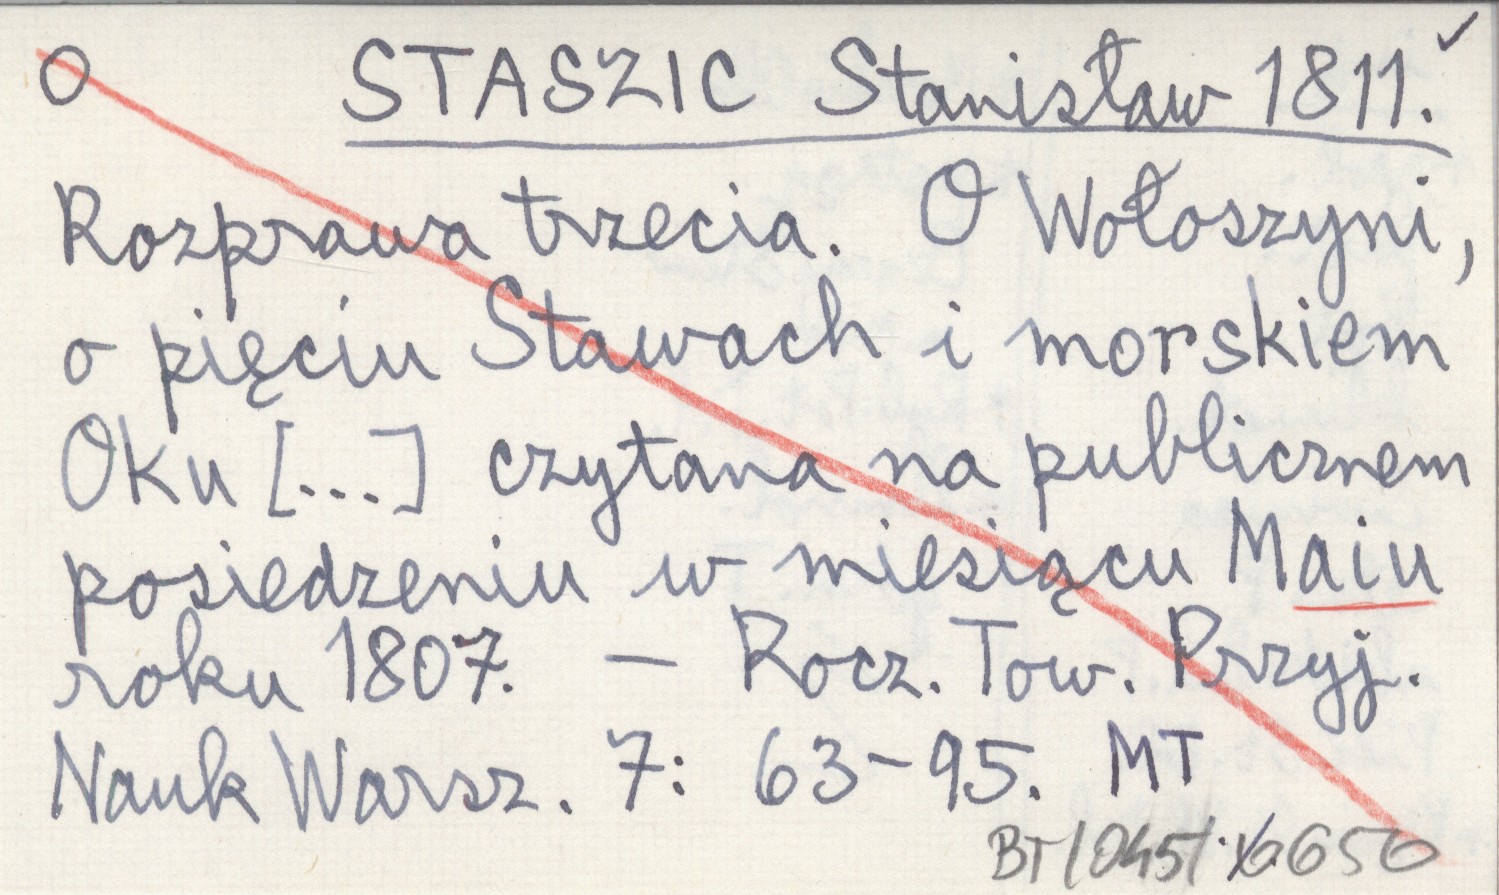 O STASZIC Stanisław 1811. ✓
Rozprawa trzecia. O Wołoszyni,
o pięciu Stawach i morskiem
Oku [...] czytana na publicznem
posiedzeniu w miesiącu Maiu
roku 1807. — Rocz. Tow. Przyj.
Nauk Warsz. 7: 63-95. MT
BT/045/